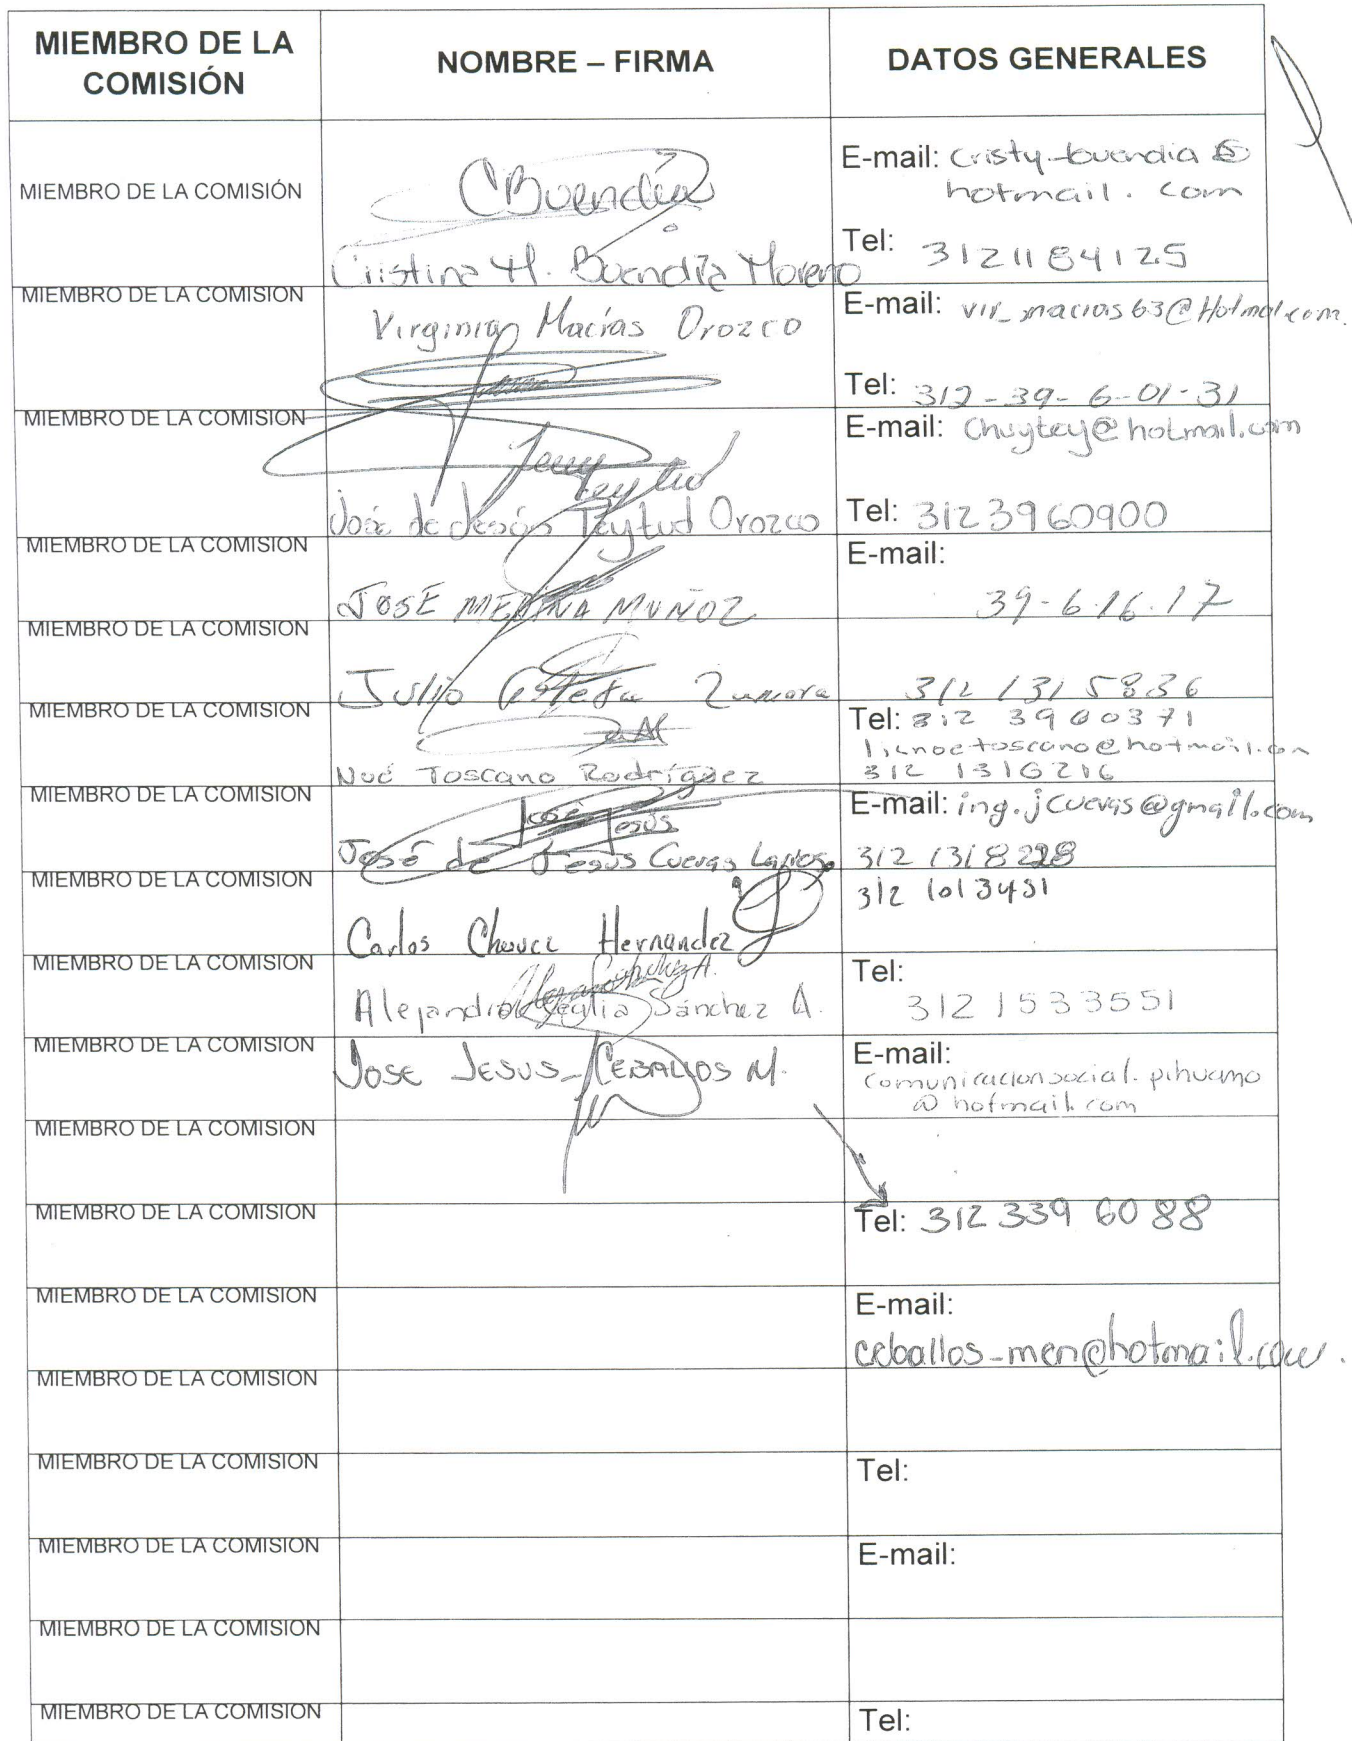 MIEMBRO DE LA
COMISIÓN
NOMBRE – FIRMA
DATOS GENERALES
MIEMBRO DE LA COMISIÓN
CBuendía
Cristina H. Buendía Moreno
E-mail: cristy_buendia @
hotmail. com
Tel: 3121184125
MIEMBRO DE LA COMISION
Virginia Macías Orozco
E-mail: vir_macias63@Hotmal.com.
Tel: 312-39-6-01-31
MIEMBRO DE LA COMISION
Jesus
Teytud
José de Jesús Teytud Orozco
E-mail: Chuytey@hotmail.com
Tel: 3123960900
MIEMBRO DE LA COMISION
JOSE MEDINA MUÑOZ
E-mail:
39-6.16.17
MIEMBRO DE LA COMISION
Julio Zamora
312 131 5836
MIEMBRO DE LA COMISION
Noé Toscano Rodríguez
Tel: 312 3960371
licnoetoscano@hotmail.com
312 1316216
MIEMBRO DE LA COMISION
José
Jesús
José de Jesus Cuevas
E-mail: ing.jcuevas@gmail.com
312 1318228
MIEMBRO DE LA COMISION
Carlos Chavez Hernandez
312 1013451
MIEMBRO DE LA COMISION
Sánchez A.
Tel:
312 1533551
MIEMBRO DE LA COMISION
JOSE JESUS CEBALLOS M.
E-mail:
comunicacionsocial.pihuamo
@hotmail.com
MIEMBRO DE LA COMISION
MIEMBRO DE LA COMISION
Tel: 312 339 6088
MIEMBRO DE LA COMISION
E-mail:
ceballos-men@hotmail.com.
MIEMBRO DE LA COMISION
MIEMBRO DE LA COMISION
Tel:
MIEMBRO DE LA COMISION
E-mail:
MIEMBRO DE LA COMISION
MIEMBRO DE LA COMISION
Tel: